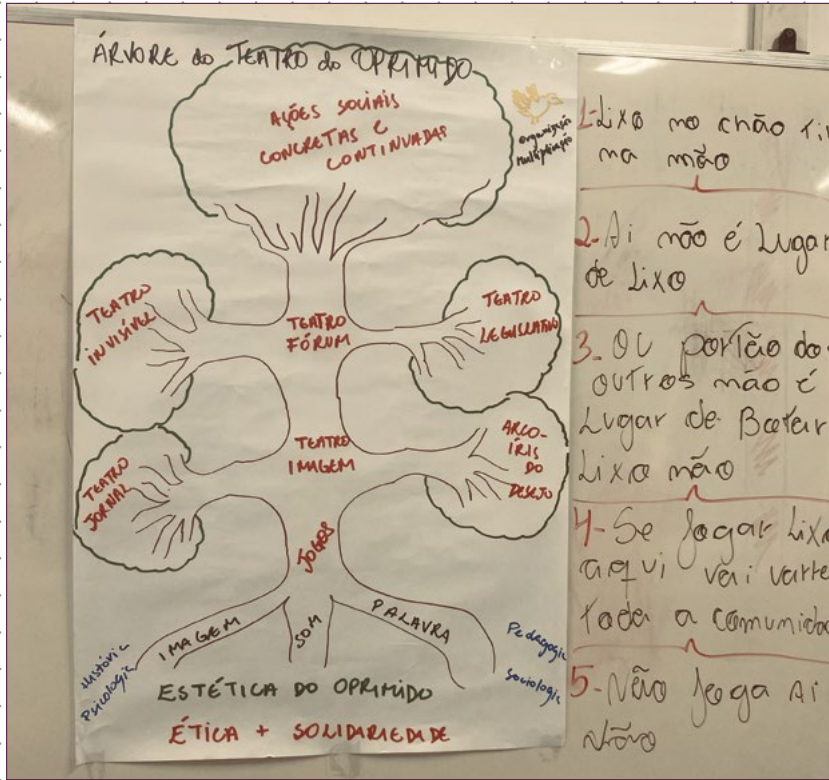 ÁRVORE do TEATRO do OPRIMIDO
AÇÕES SOCIAIS
CONCRETAS E
CONTINUADAS
organização
multiplicação
TEATRO
INVISÍVEL
TEATRO
FÓRUM
TEATRO
LEGISLATIVO
TEATRO
JORNAL
TEATRO
IMAGEM
ARCO-
ÍRIS
DO
DESEJO
JOGOS
IMAGEM
SOM
PALAVRA
História
Psicologia
Pedagogia
Sociologia
ESTÉTICA DO OPRIMIDO
ÉTICA + SOLIDARIEDADE
1-Lixo no chão
na mão
2-Ai não é Lugar
de Lixo
3-OU portão do
outros não é
Lugar de Botar
Lixo não
4-Se Jogar Lixo
aqui vai
toda a
5-Não joga Ai
Não